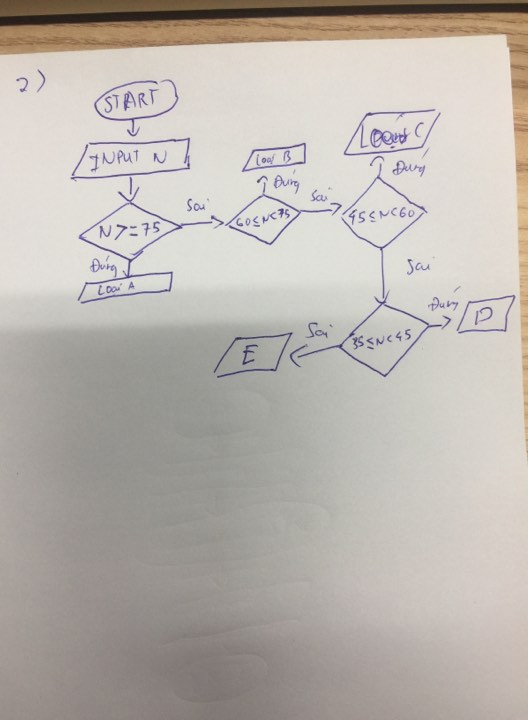 2)
START
INPUT N
N >= 75
Đúng
Loại A
Sai
60 ≤ N < 75
Đúng
Loại B
Sai
45 ≤ N < 60
Đúng
Loại C
Sai
35 ≤ N < 45
Đúng
D
Sai
E